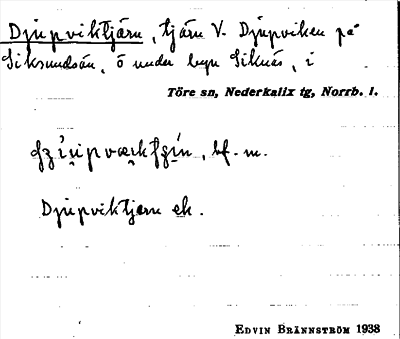 Djupviktjärn, tjärn V. Djupviken på
Siksundsån, ö under byn Siknäs, i
Töre sn, Nederkalix tg, Norrb. l.
bf. m.
Djupviktjärn ek.
EDVIN BRÄNNSTRÖM 1938